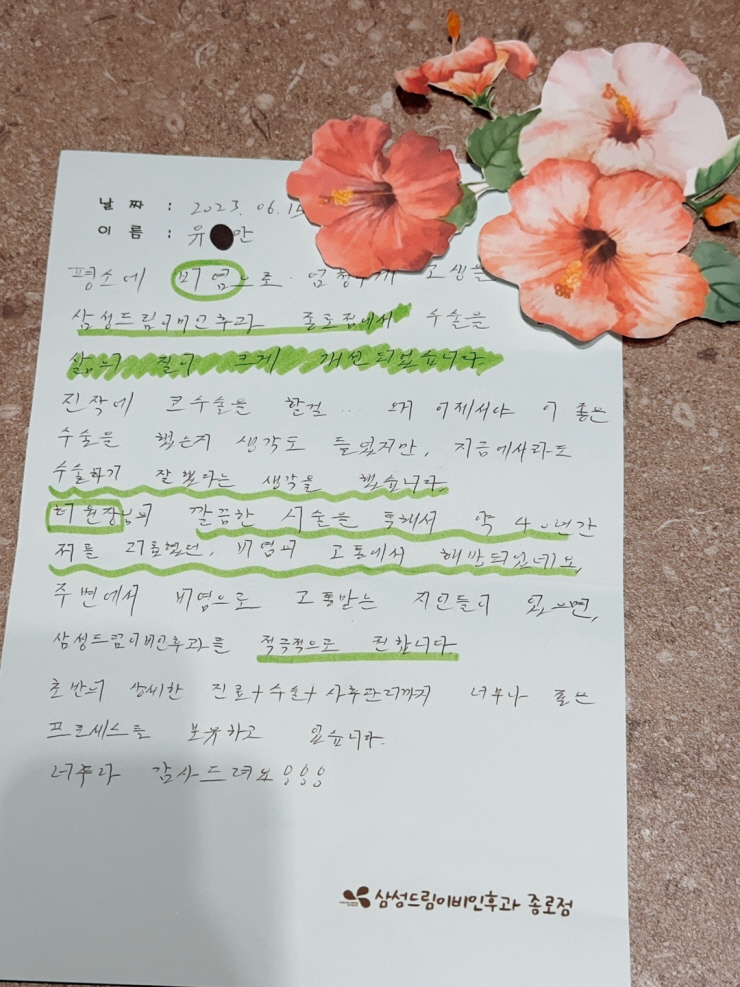 날 짜 : 2023. 06. 15
이 름 : 유 만
평소에 비염으로 엄청나게 고생을
삼성드림이비인후과 종로점에서 수술을
삶의 질이 크게 개선되었습니다.
진작에 코수술을 할걸 ... 왜 이제서야 이 좋은
수술을 했는지 생각도 들었지만, 지금에서라도
수술하기 잘했다는 생각을 했습니다.
원장님의 깔끔한 시술을 통해서 약 40년간
저를 괴롭혔던, 비염의 고통에서 해방되었네요.
주변에서 비염으로 고통받는 지인들이 있으면,
삼성드림이비인후과를 적극적으로 권합니다.
초반의 상세한 진료+수술+사후관리까지 너무나 좋은
프로세스를 보유하고 있습니다.
너무나 감사드려요
삼성드림이비인후과 종로점